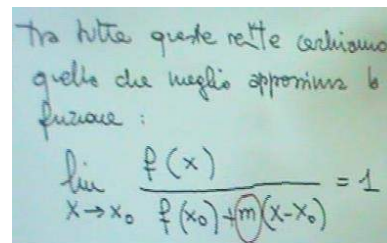 tra tutte queste rette cerchiamo
quella che meglio approssima la
funzione :
lim x→x₀ f(x) / f(x₀)+m(x-x₀) = 1